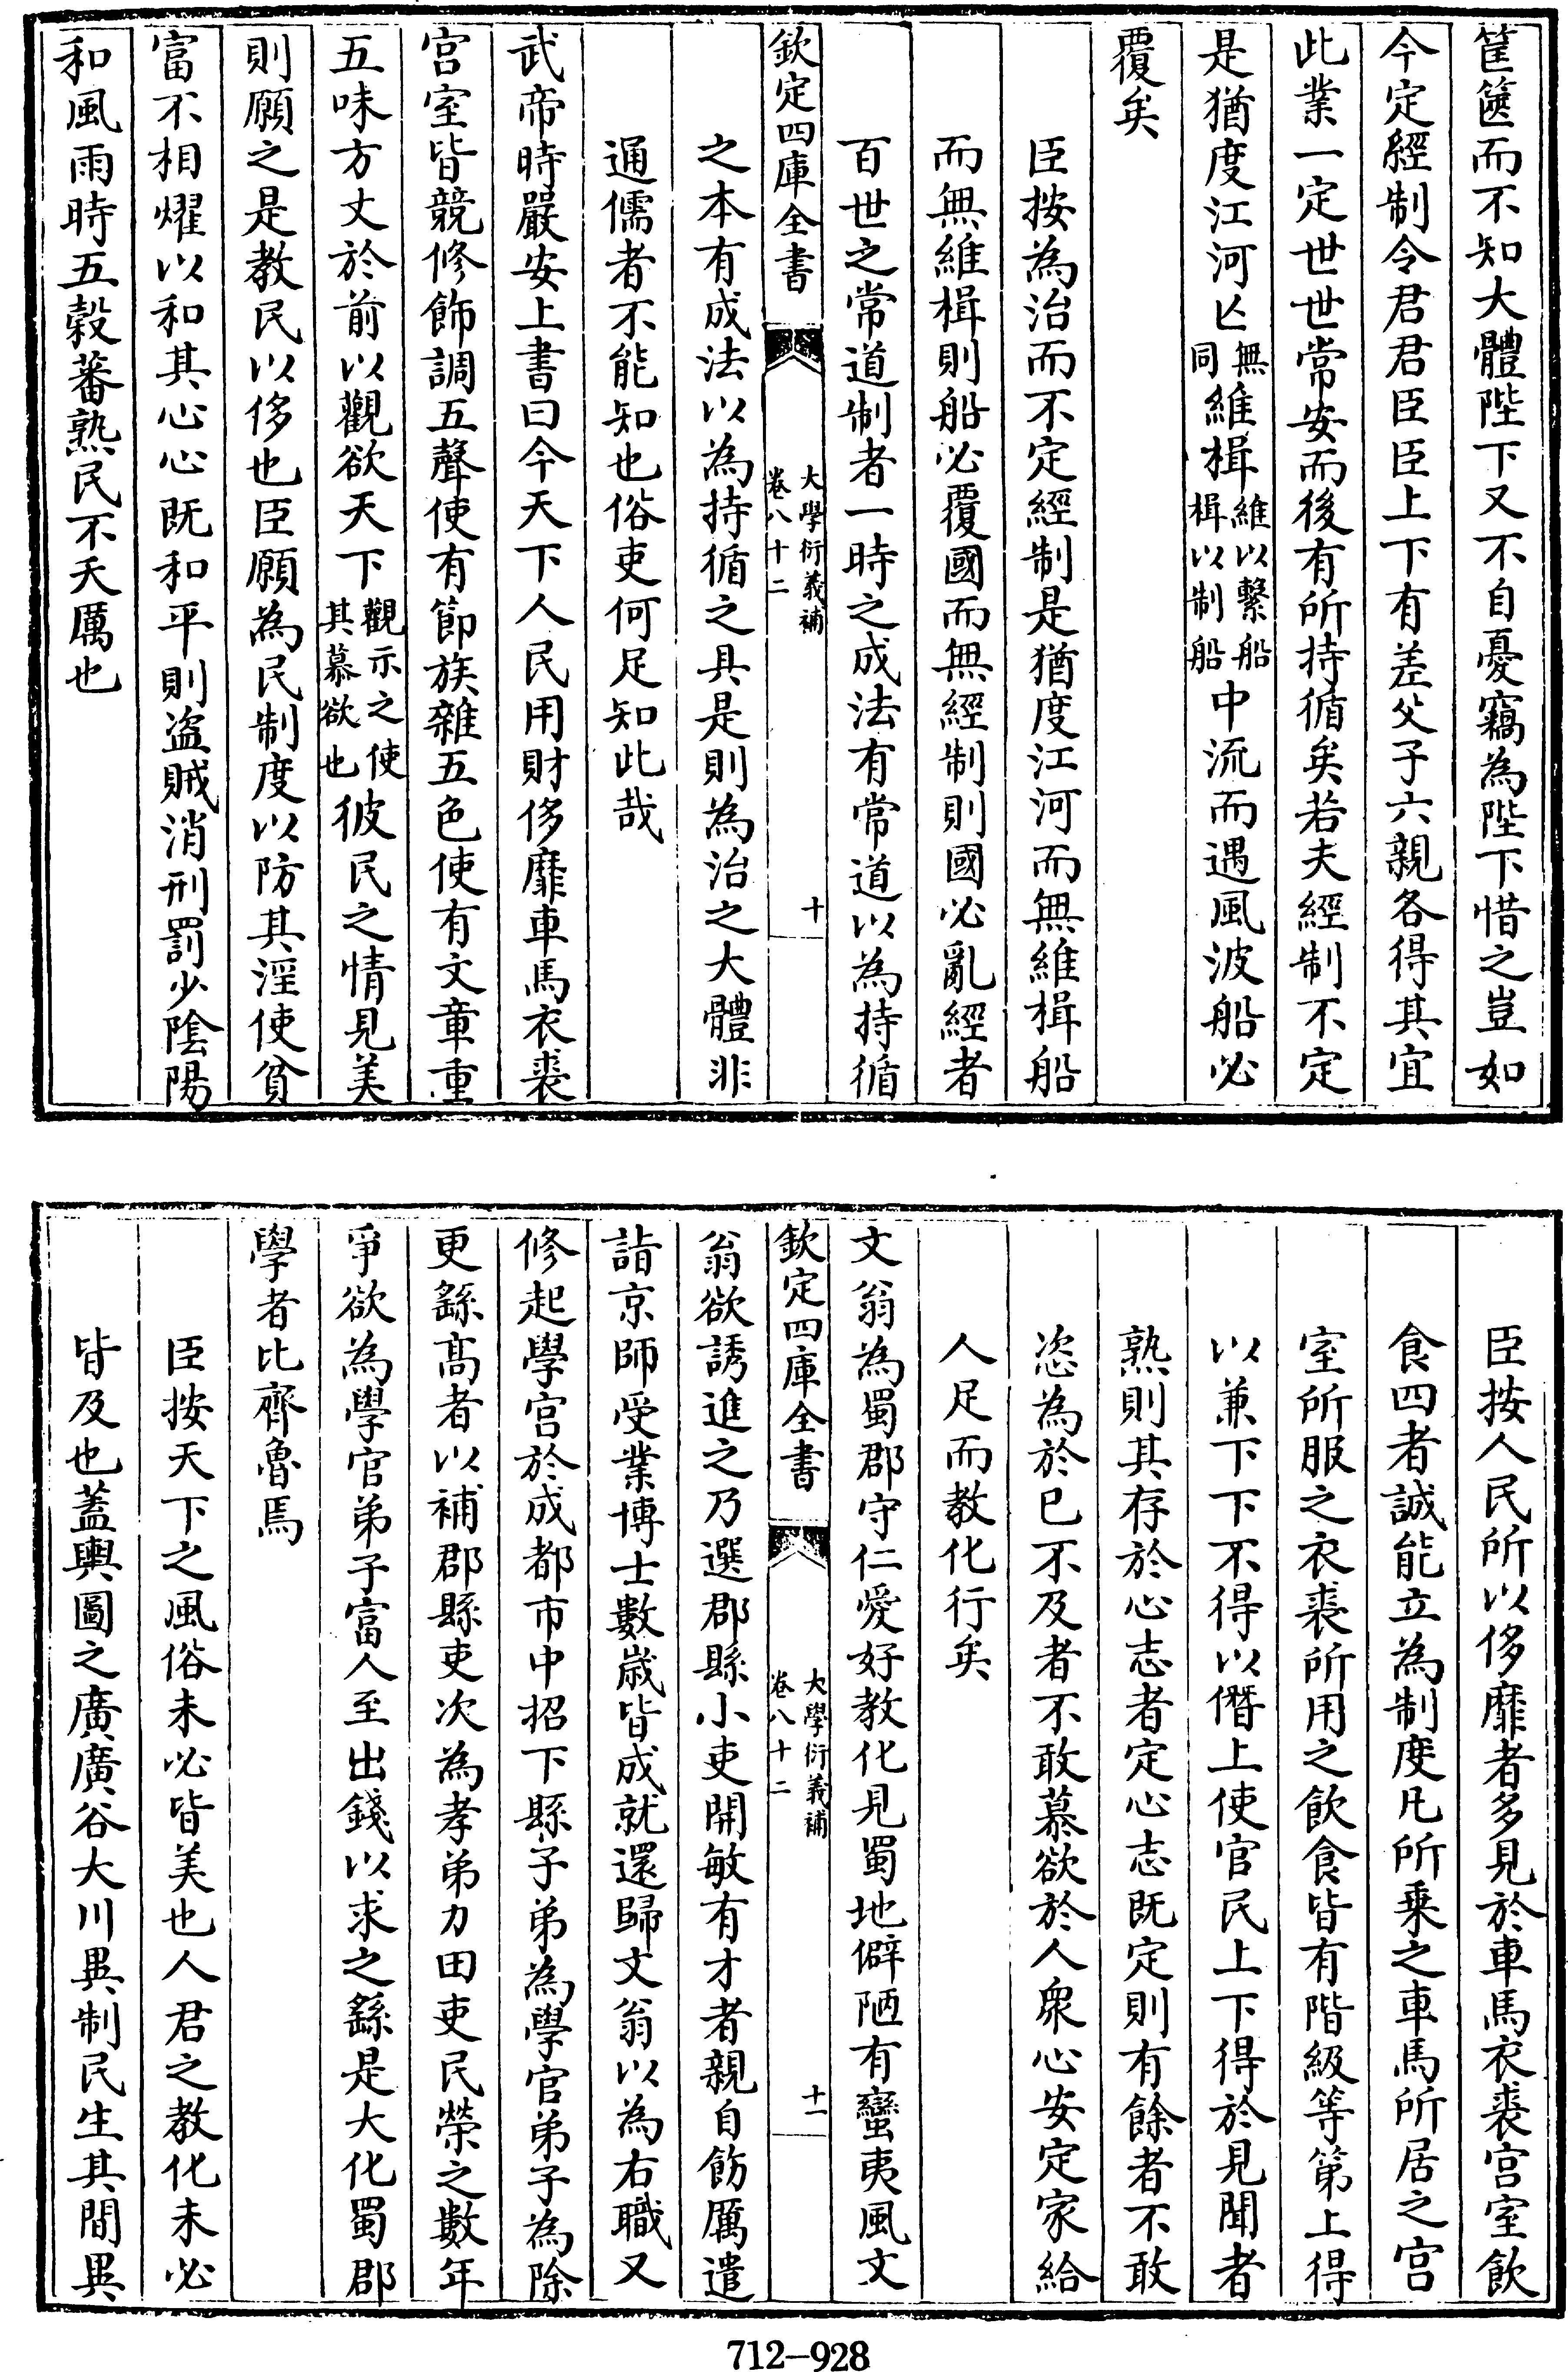 筐篋而不知大體陛下又不自憂竊為陛下惜之豈如
今定經制令君君臣臣上下有差父子六親各得其宜
此業一定世世常安而後有所持循矣若夫經制不定
是猶度江河亾無同維楫維以繫船楫以制船中流而遇風波船必
覆矣
臣按為治而不定經制是猶度江河而無維楫船
而無維楫則船必覆國而無經制則國必亂經者
百世之常道制者一時之成法有常道以為持循
欽定四庫全書
大學衍義補
卷八十二
十
之本有成法以為持循之具是則為治之大體非
通儒者不能知也俗吏何足知此哉
武帝時嚴安上書曰今天下人民用財侈靡車馬衣裘
宫室皆競修飾調五聲使有節族雜五色使有文章重
五味方丈於前以觀欲天下觀示之使其慕欲也彼民之情見美
則願之是教民以侈也臣願為民制度以防其淫使貧
富不相燿以和其心心既和平則盜賊消刑罰少陰陽
和風雨時五榖蕃熟民不夭厲也
臣按人民所以侈靡者多見於車馬衣裘宫室飲
食四者誠能立為制度凡所乗之車馬所居之宫
室所服之衣裘所用之飲食皆有階級等第上得
以兼下下不得以僭上使官民上下得於見聞者
熟則其存於心志者定心志既定則有餘者不敢
恣為於已不及者不敢慕欲於人衆心安定家給
人足而教化行矣
文翁為蜀郡守仁愛好教化見蜀地僻陋有蠻夷風文
欽定四庫全書
大學衍義補
卷八十二
十一
翁欲誘進之乃選郡縣小吏開敏有才者親自飭厲遣
詣京師受業博士數嵗皆成就還歸文翁以為右職又
修起學宫於成都市中招下縣子弟為學官弟子為除
更繇髙者以補郡縣吏次為孝弟力田吏民榮之數年
爭欲為學官弟子富人至出錢以求之繇是大化蜀郡
學者比齊魯焉
臣按天下之風俗未必皆美也人君之教化未必
皆及也蓋輿圖之廣廣谷大川異制民生其間異
712-928